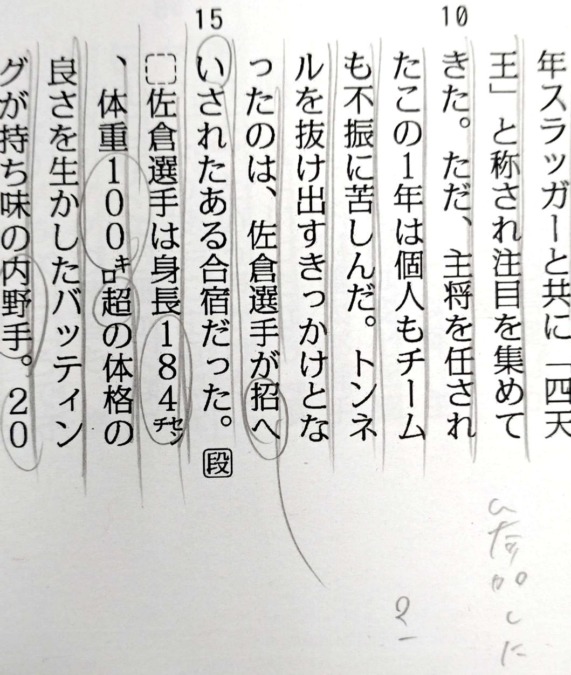 10
15
年スラッガーと共に「四天
王」と称され注目を集めて
きた。ただ、主将を任され
たこの1年は個人もチーム
も不振に苦しんだ。トンネ
ルを抜け出すきっかけとな
ったのは、佐倉選手が招へ
いされたある合宿だった。段
佐倉選手は身長184㌢
、体重100㌔超の体格の
良さを生かしたバッティン
グが持ち味の内野手。20